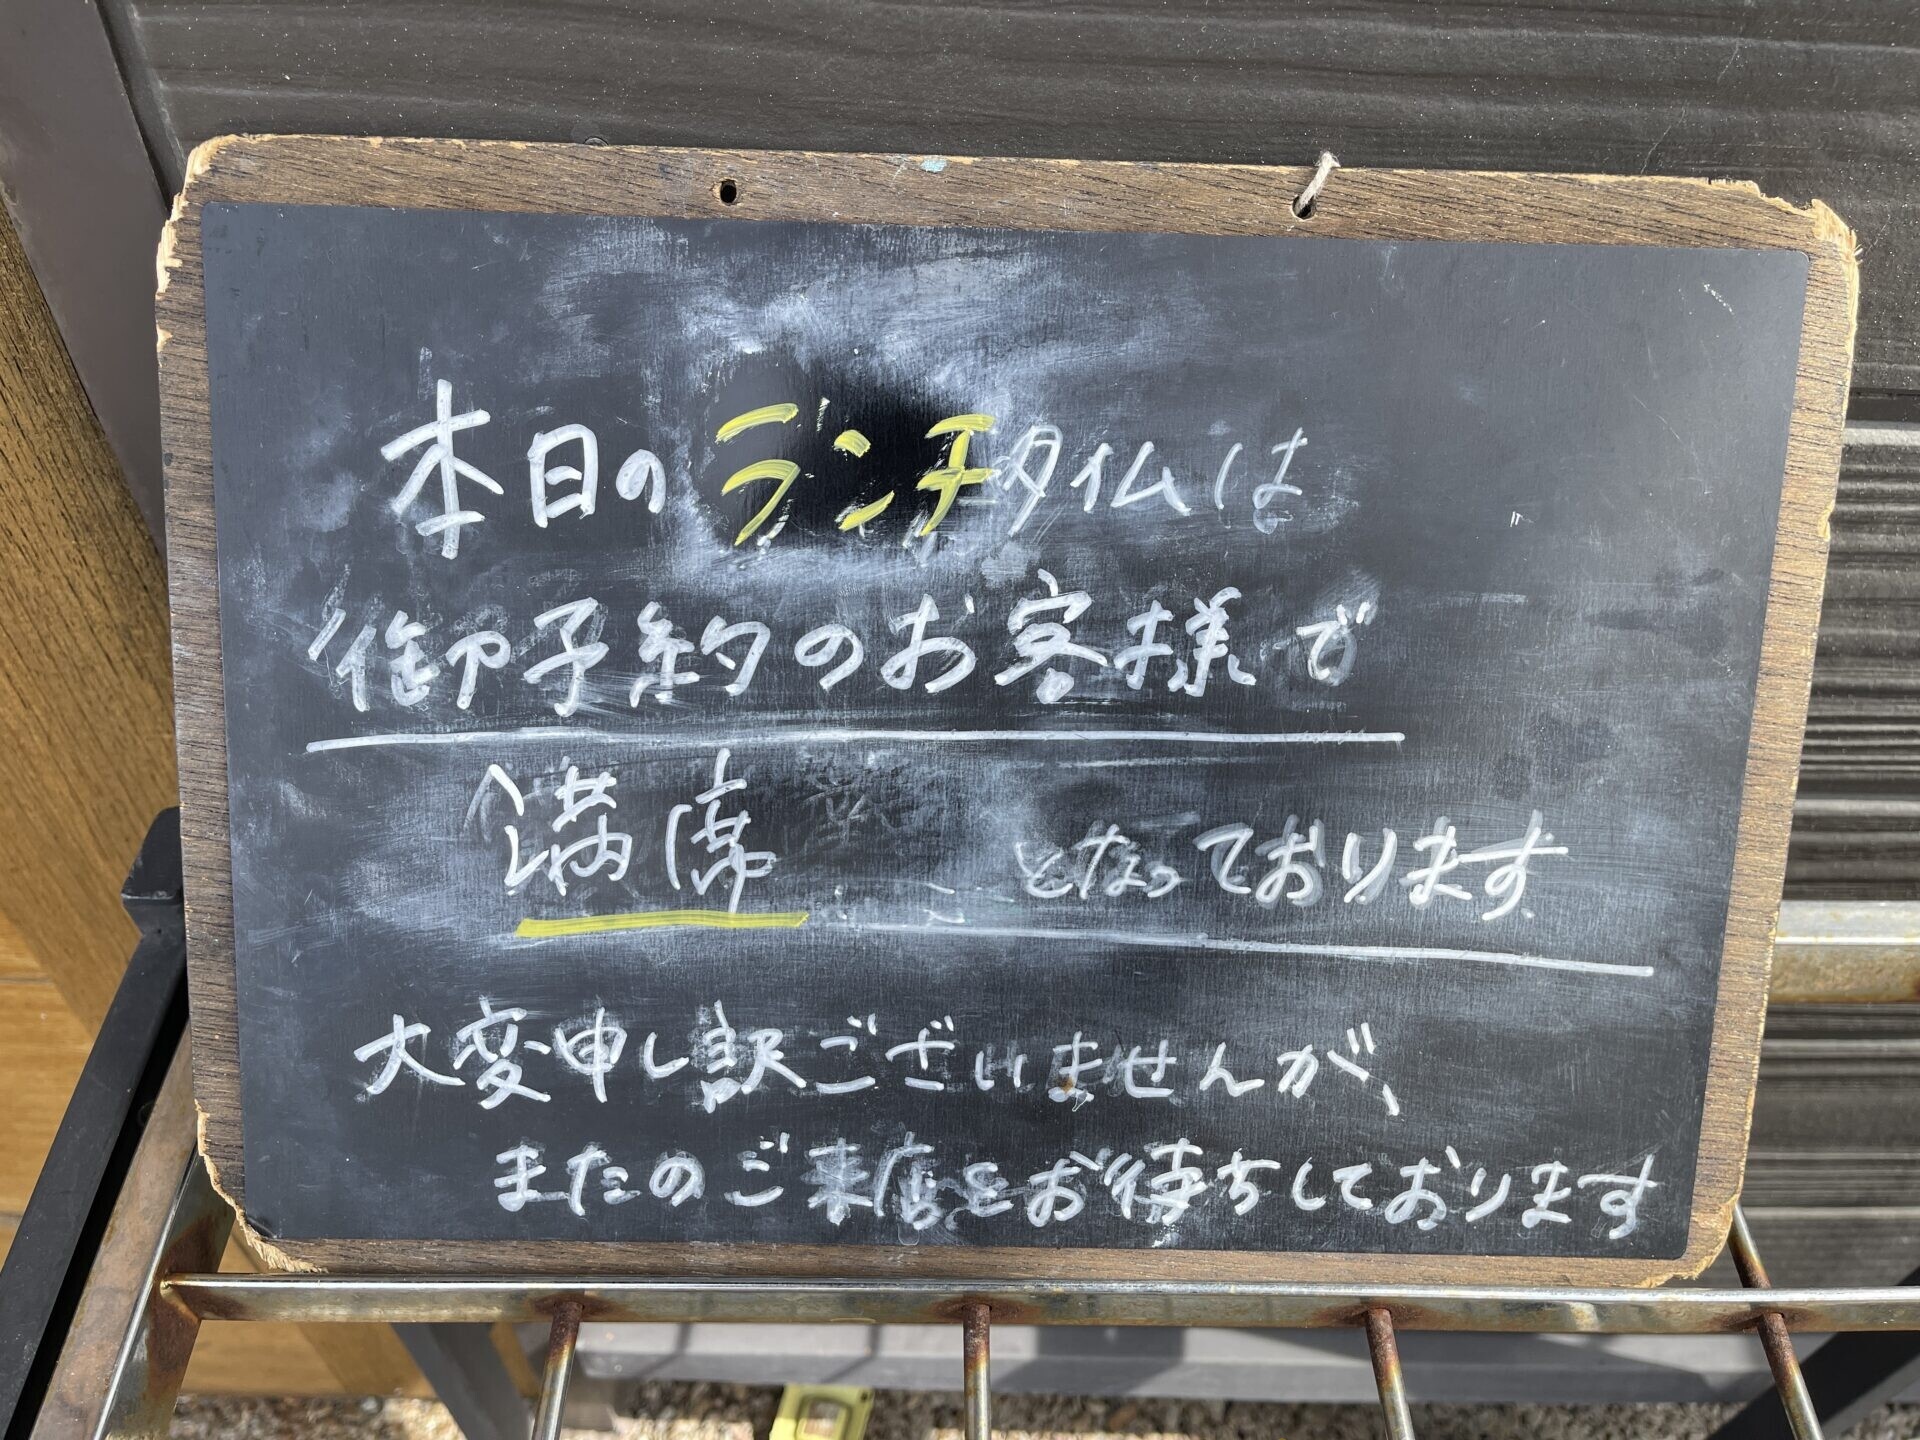 本日のランチタイムは
御予約のお客様で
満席 となっております
大変申し訳ございませんが、
またのご来店をお待ちしております